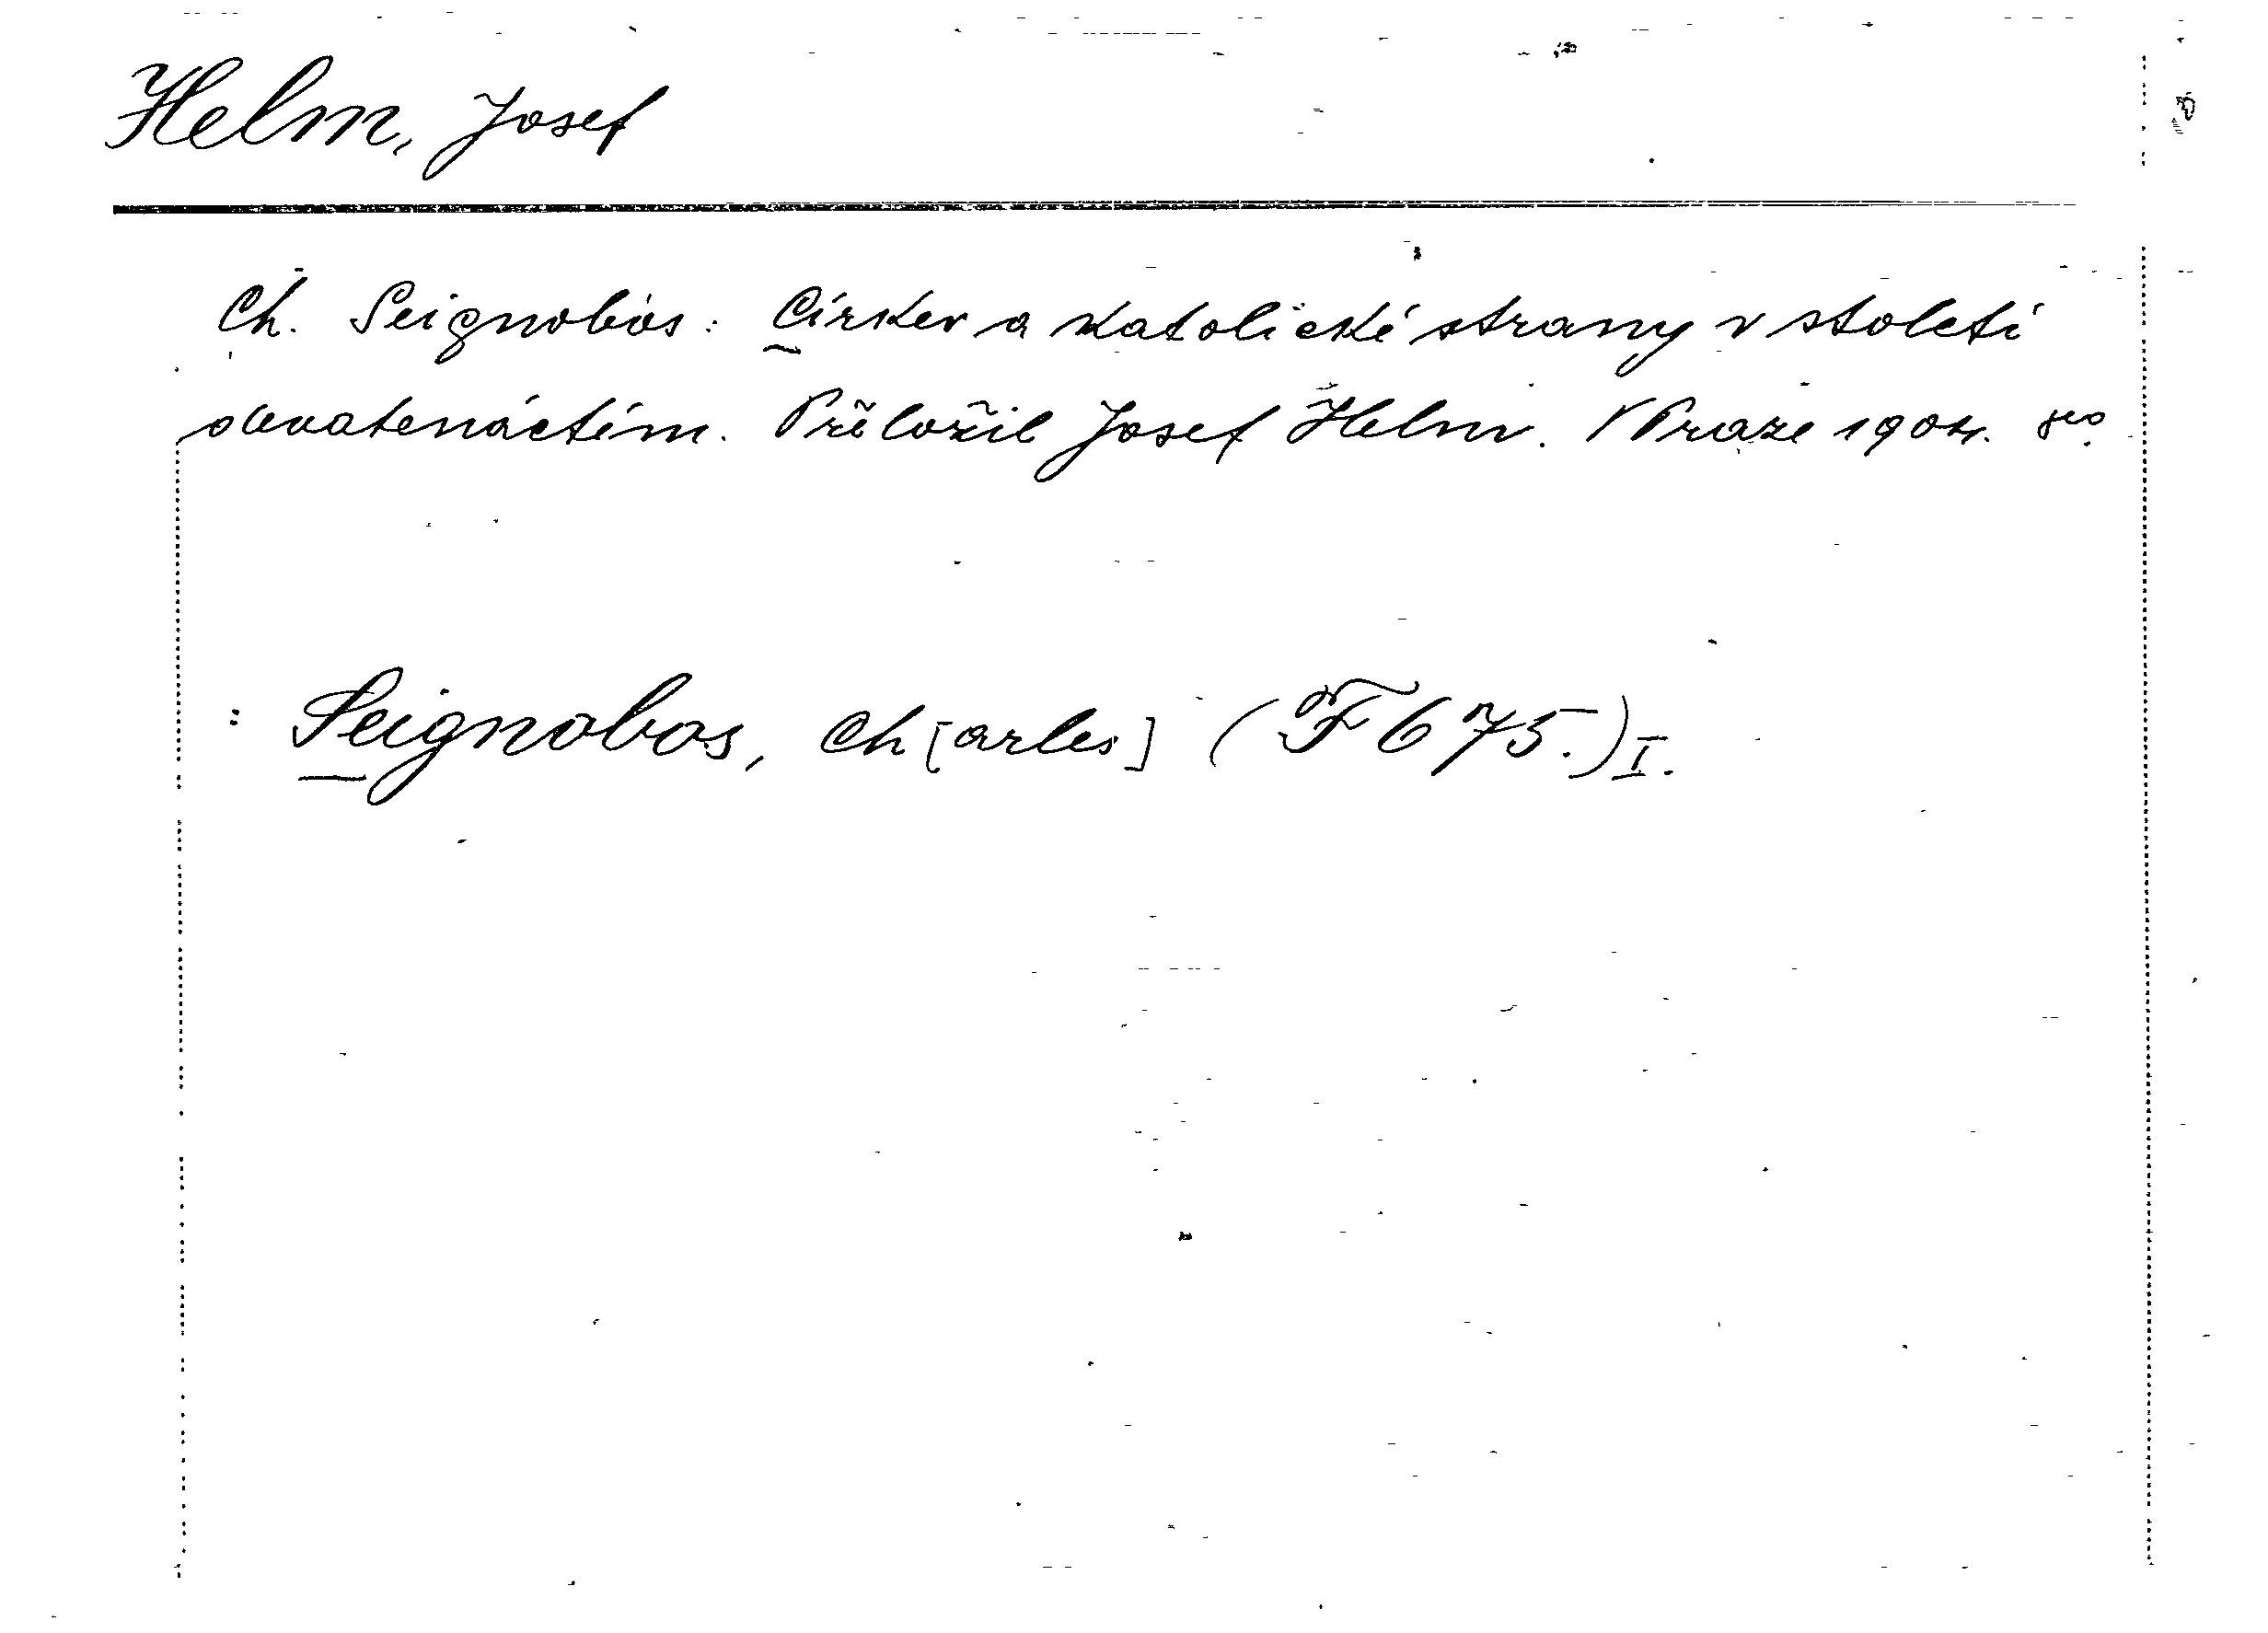 Helm, Josef
Ch. Seignobos: Církev a katolické strany v století
devatenáctém. Přeložil Josef Helm. V Praze 1904. 8o.
: Seignobos, Ch[arles] (F 675.) I.